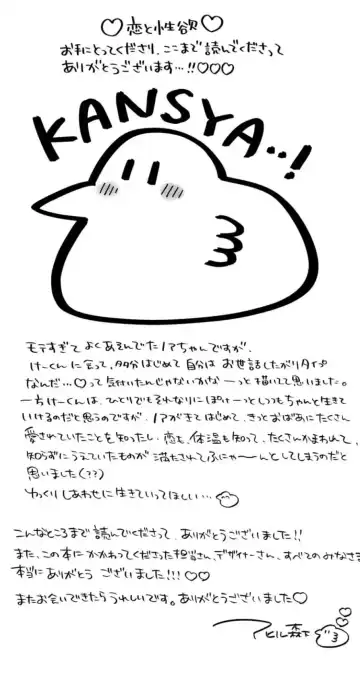 ♡恋と性欲♡
お手にとってくださり、ここまで読んでくださって
ありがとうございます…!!♡♡♡
KANSYA..!
モテすぎてよくあそんでたノアちゃんですが、
けーくんに会って、多分はじめて自分は お世話したがりタイプ
なんだ…♡って気付いたんじゃないかなーっと描いてて思いました。
一方けーくんは、ひとりでもそれなりにぽけーっとしつつもちゃんと生きて
いけるのだと思うのですが、ノアがきてはじめて、きっとおばあにたくさん
愛されていたことを知ったし、恋も、体温も知って、たくさんかまわれて、
知らずにうえていたものが 満たされてふにゃ〜んとしてしまうのだと
思いました(??)
ゆっくりしあわせに生きていってほしい…
こんなところまで読んでくださって、ありがとうございました!!
また、この本にかかわってくださった担当さん、デザイナーさん、すべてのみなさま
本当にありがとう ございました!!!♡♡
またお会いできたらうれしいです。ありがとうございました♡
アヒル森下